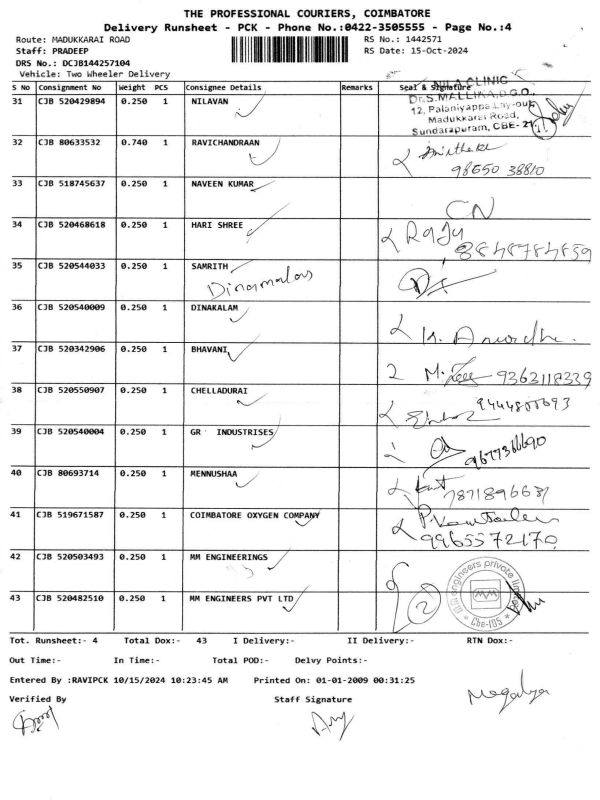 THE PROFESSIONAL COURIERS, COIMBATORE
Delivery Runsheet - PCK - Phone No.:0422-3505555 - Page No.:4
Route: MADUKKARAI ROAD RS No.: 1442571
Staff: PRADEEP RS Date: 15-Oct-2024
DRS No.: DCJB144257104
Vehicle: Two Wheeler Delivery
S No Consignment No Weight PCS Consignee Details Remarks Seal & Signature
NILA CLINIC
Dr.S.MALLIKA,D.G.O.
12, Palaniyappa Lay-out,
Madukkarai Road,
Sundarapuram, CBE- 21
31 CJB 520429894 0.250 1 NILAVAN
32 CJB 80633532 0.740 1 RAVICHANDRAAN
98650 38810
33 CJB 518745637 0.250 1 NAVEEN KUMAR
CN
34 CJB 520468618 0.250 1 HARI SHREE
Raju
8848784839
35 CJB 520544033 0.250 1 SAMRITH
Dinamalar
36 CJB 520540009 0.250 1 DINAKALAM
37 CJB 520342906 0.250 1 BHAVANI
9363118339
38 CJB 520550907 0.250 1 CHELLADURAI
39 CJB 520540004 0.250 1 GR INDUSTRISES
9677366690
40 CJB 80693714 0.250 1 MENNUSHAA
41 CJB 519671587 0.250 1 COIMBATORE OXYGEN COMPANY
9965572170
42 CJB 520503493 0.250 1 MM ENGINEERINGS
43 CJB 520482510 0.250 1 MM ENGINEERS PVT LTD
2
engineers private limited
MM
Cbe-105
Tot. Runsheet:- 4 Total Dox:- 43 I Delivery:- II Delivery:- RTN Dox:-
Out Time:- In Time:- Total POD:- Delvy Points:-
Entered By :RAVIPCK 10/15/2024 10:23:45 AM Printed On: 01-01-2009 00:31:25
Verified By Staff Signature